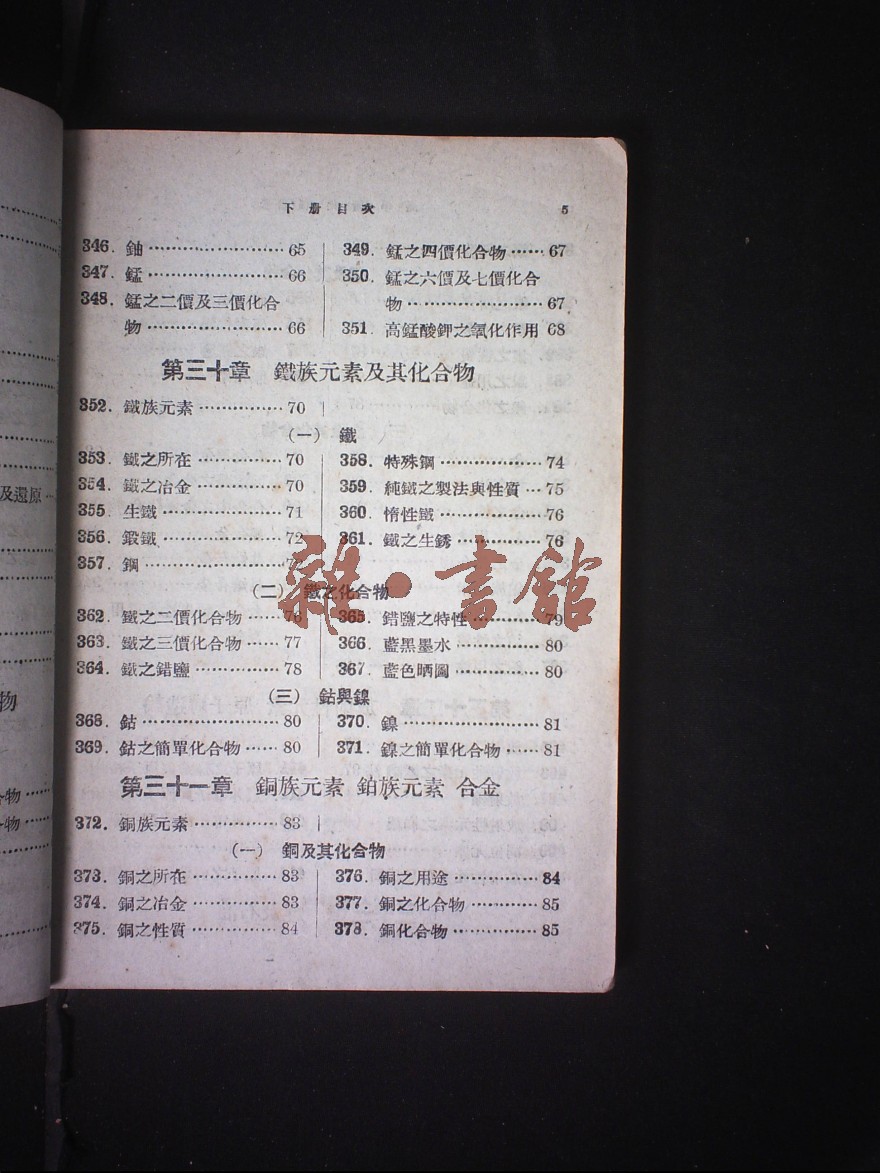 下册目次 5
346. 鈾 65
347. 錳 66
348. 錳之二價及三價化合
物 66
349. 錳之四價化合物 67
350. 錳之六價及七價化合
物 67
351. 高錳酸鉀之氧化作用 68
第三十章 鐵族元素及其化合物
352. 鐵族元素 70
(一) 鐵
353. 鐵之所在 70
354. 鐵之冶金 70
355. 生鐵 71
356. 鍛鐵 72
357. 鋼
358. 特殊鋼 74
359. 純鐵之製法與性質 75
360. 惰性鐵 76
361. 鐵之生銹 76
(二) 鐵之化合物
362. 鐵之二價化合物 76
363. 鐵之三價化合物 77
364. 鐵之錯鹽 78
365. 錯鹽之特性 79
366. 藍黑墨水 80
367. 藍色晒圖 80
(三) 鈷與鎳
368. 鈷 80
369. 鈷之簡單化合物 80
370. 鎳 81
371. 鎳之簡單化合物 81
第三十一章 銅族元素 鉑族元素 合金
372. 銅族元素 83
(一) 銅及其化合物
373. 銅之所在 83
374. 銅之冶金 83
375. 銅之性質 84
376. 銅之用途 84
377. 銅之化合物 85
378. 銅化合物 85
雜·書館
及還原
物
合物
物